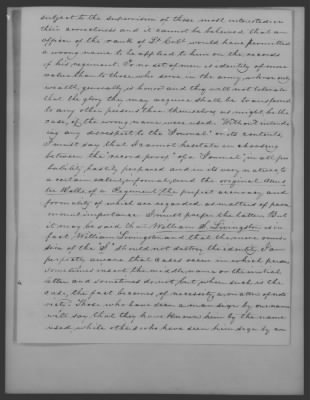 subject to the supervision of those most interested in
their correctness and it cannot be believed that an
officer of the rank of Lt Col. would have permitted
a wrong name to be applied to him on the records
of his regiment. To no set of men is identity of more
value than to those who serve in the army, whose only
wealth, generally, is honor and they will not tolerate
that the glory they may acquire shall be transferred
to any other person than themselves, as might be the
case, if the wrong name were used. Without intend-
ing any disrespect to the "Journal" or its contents,
I must say that I cannot hesitate in choosing
between the "record proof" of a "Journal", in all pro-
bability, hastily prepared and in its very nature, to
a certain extent, informal, and the original Mus-
ter Rolls of a Regiment, the perfect accuracy and
formality of which are regarded as matters of para-
mount importance. I must prefer the latter. But
it may be said that William S. Livingston is in
fact William Livingston and that the mere omis-
sion of the "S" should not destroy the identity. I am
perfectly aware that cases occur in which persons
sometimes insert the middle name or the initial
letter and sometimes do not, but when such is the
case, the fact becomes of necessity a matter of no-
toriety. Those who have seen a man sign by one name
will say that they have known him by the name
used while others who have seen him sign by an